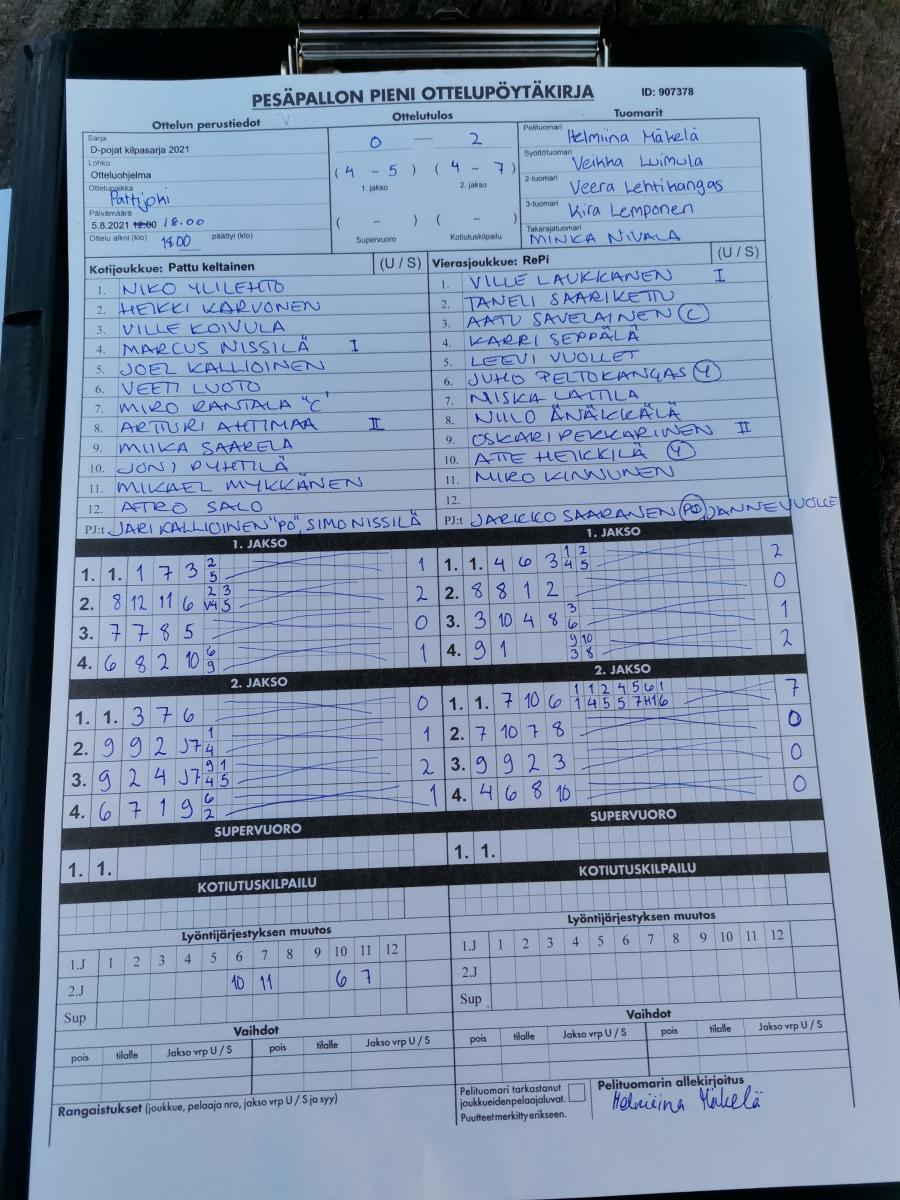 PESÄPALLON PIENI OTTELUPÖYTÄKIRJA ID: 907378
Ottelun perustiedot Ottelutulos Tuomarit
Sarja
D-pojat kilpasarja 2021
Lohko
Otteluohjelma
Ottelupaikka
Pattijoki
Päivämäärä
5.8.2021 12:00 18.00
Ottelu alkoi (klo) 1800 päättyi (klo)
0 — 2
( 4 - 5 ) ( 4 - 7 )
1. jakso 2. jakso
( - ) ( - )
Supervuoro Kotiutuskilpailu
Pelituomari Helmiina Mäkelä
Syöttötuomari Veikka Luimula
2-tuomari Veera Lehtikangas
3-tuomari Kira Lemponen
Takarajatuomari MINKA NIVALA
Kotijoukkue: Pattu keltainen (U / S)
1. NIKO YLILEHTO
2. HEIKKI KARVONEN
3. VILLE KOIVULA
4. MARCUS NISSILÄ I
5. JOEL KALLIOINEN
6. VEETI LUOTO
7. MIRO RANTALA "C"
8. ARTTURI AHTIMAA II
9. MIIKA SAARELA
10. JONI PYHTILÄ
11. MIKAEL MYKKÄNEN
12. ATRO SALO
PJ:t JARI KALLIOINEN "PO", SIMO NISSILÄ
Vierasjoukkue: RePi (U / S)
1. VILLE LAUKKANEN I
2. TANELI SAARIKETTU
3. AATU SAVELAINEN C
4. KARRI SEPPÄLÄ
5. LEEVI VUOLLET
6. JUHO PELTOKANGAS Y
7. NISKA LATTILA
8. NIILO ÄNÄKKÄLÄ
9. OSKARI PEKKARINEN II
10. ATTE HEIKKILÄ Y
11. MIRO KINNUNEN
12.
PJ:t JARKKO SAARANEN PO JANNE VUOLLE
1. JAKSO
1. 1. 1 7 3 2 5 1
2. 8 12 11 6 2 3 V4 5 2
3. 7 7 8 5 0
4. 6 8 2 10 6 9 1
1. JAKSO
1. 1. 4 6 3 1 2 4 5 2
2. 8 8 1 2 0
3. 3 10 4 8 3 6 1
4. 9 1 9 10 3 8 2
2. JAKSO
1. 1. 3 7 6 0
2. 9 9 2 J7 1 4 1
3. 9 2 4 J7 9 1 4 5 2
4. 6 7 1 9 6 2 1
2. JAKSO
1. 1. 7 10 6 1 1 2 4 5 6 1 1 4 5 5 7 H1 6 7
2. 7 10 7 8 0
3. 9 9 2 3 0
4. 4 6 8 10 0
SUPERVUORO SUPERVUORO
1. 1. 1. 1.
KOTIUTUSKILPAILU KOTIUTUSKILPAILU
Lyöntijärjestyksen muutos
1.J 1 2 3 4 5 6 7 8 9 10 11 12
2.J 10 11 6 7
Sup
Lyöntijärjestyksen muutos
1.J 1 2 3 4 5 6 7 8 9 10 11 12
2.J
Sup
Vaihdot
pois tilalle Jakso vrp U / S pois tilalle Jakso vrp U / S
Vaihdot
pois tilalle Jakso vrp U / S pois tilalle Jakso vrp U / S
Rangaistukset (joukkue, pelaaja nro, jakso vrp U / S ja syy)
Pelituomari tarkastanut
joukkueiden pelaajaluvat.
Puutteet merkitty erikseen.
Pelituomarin allekirjoitus
Helmiina Mäkelä